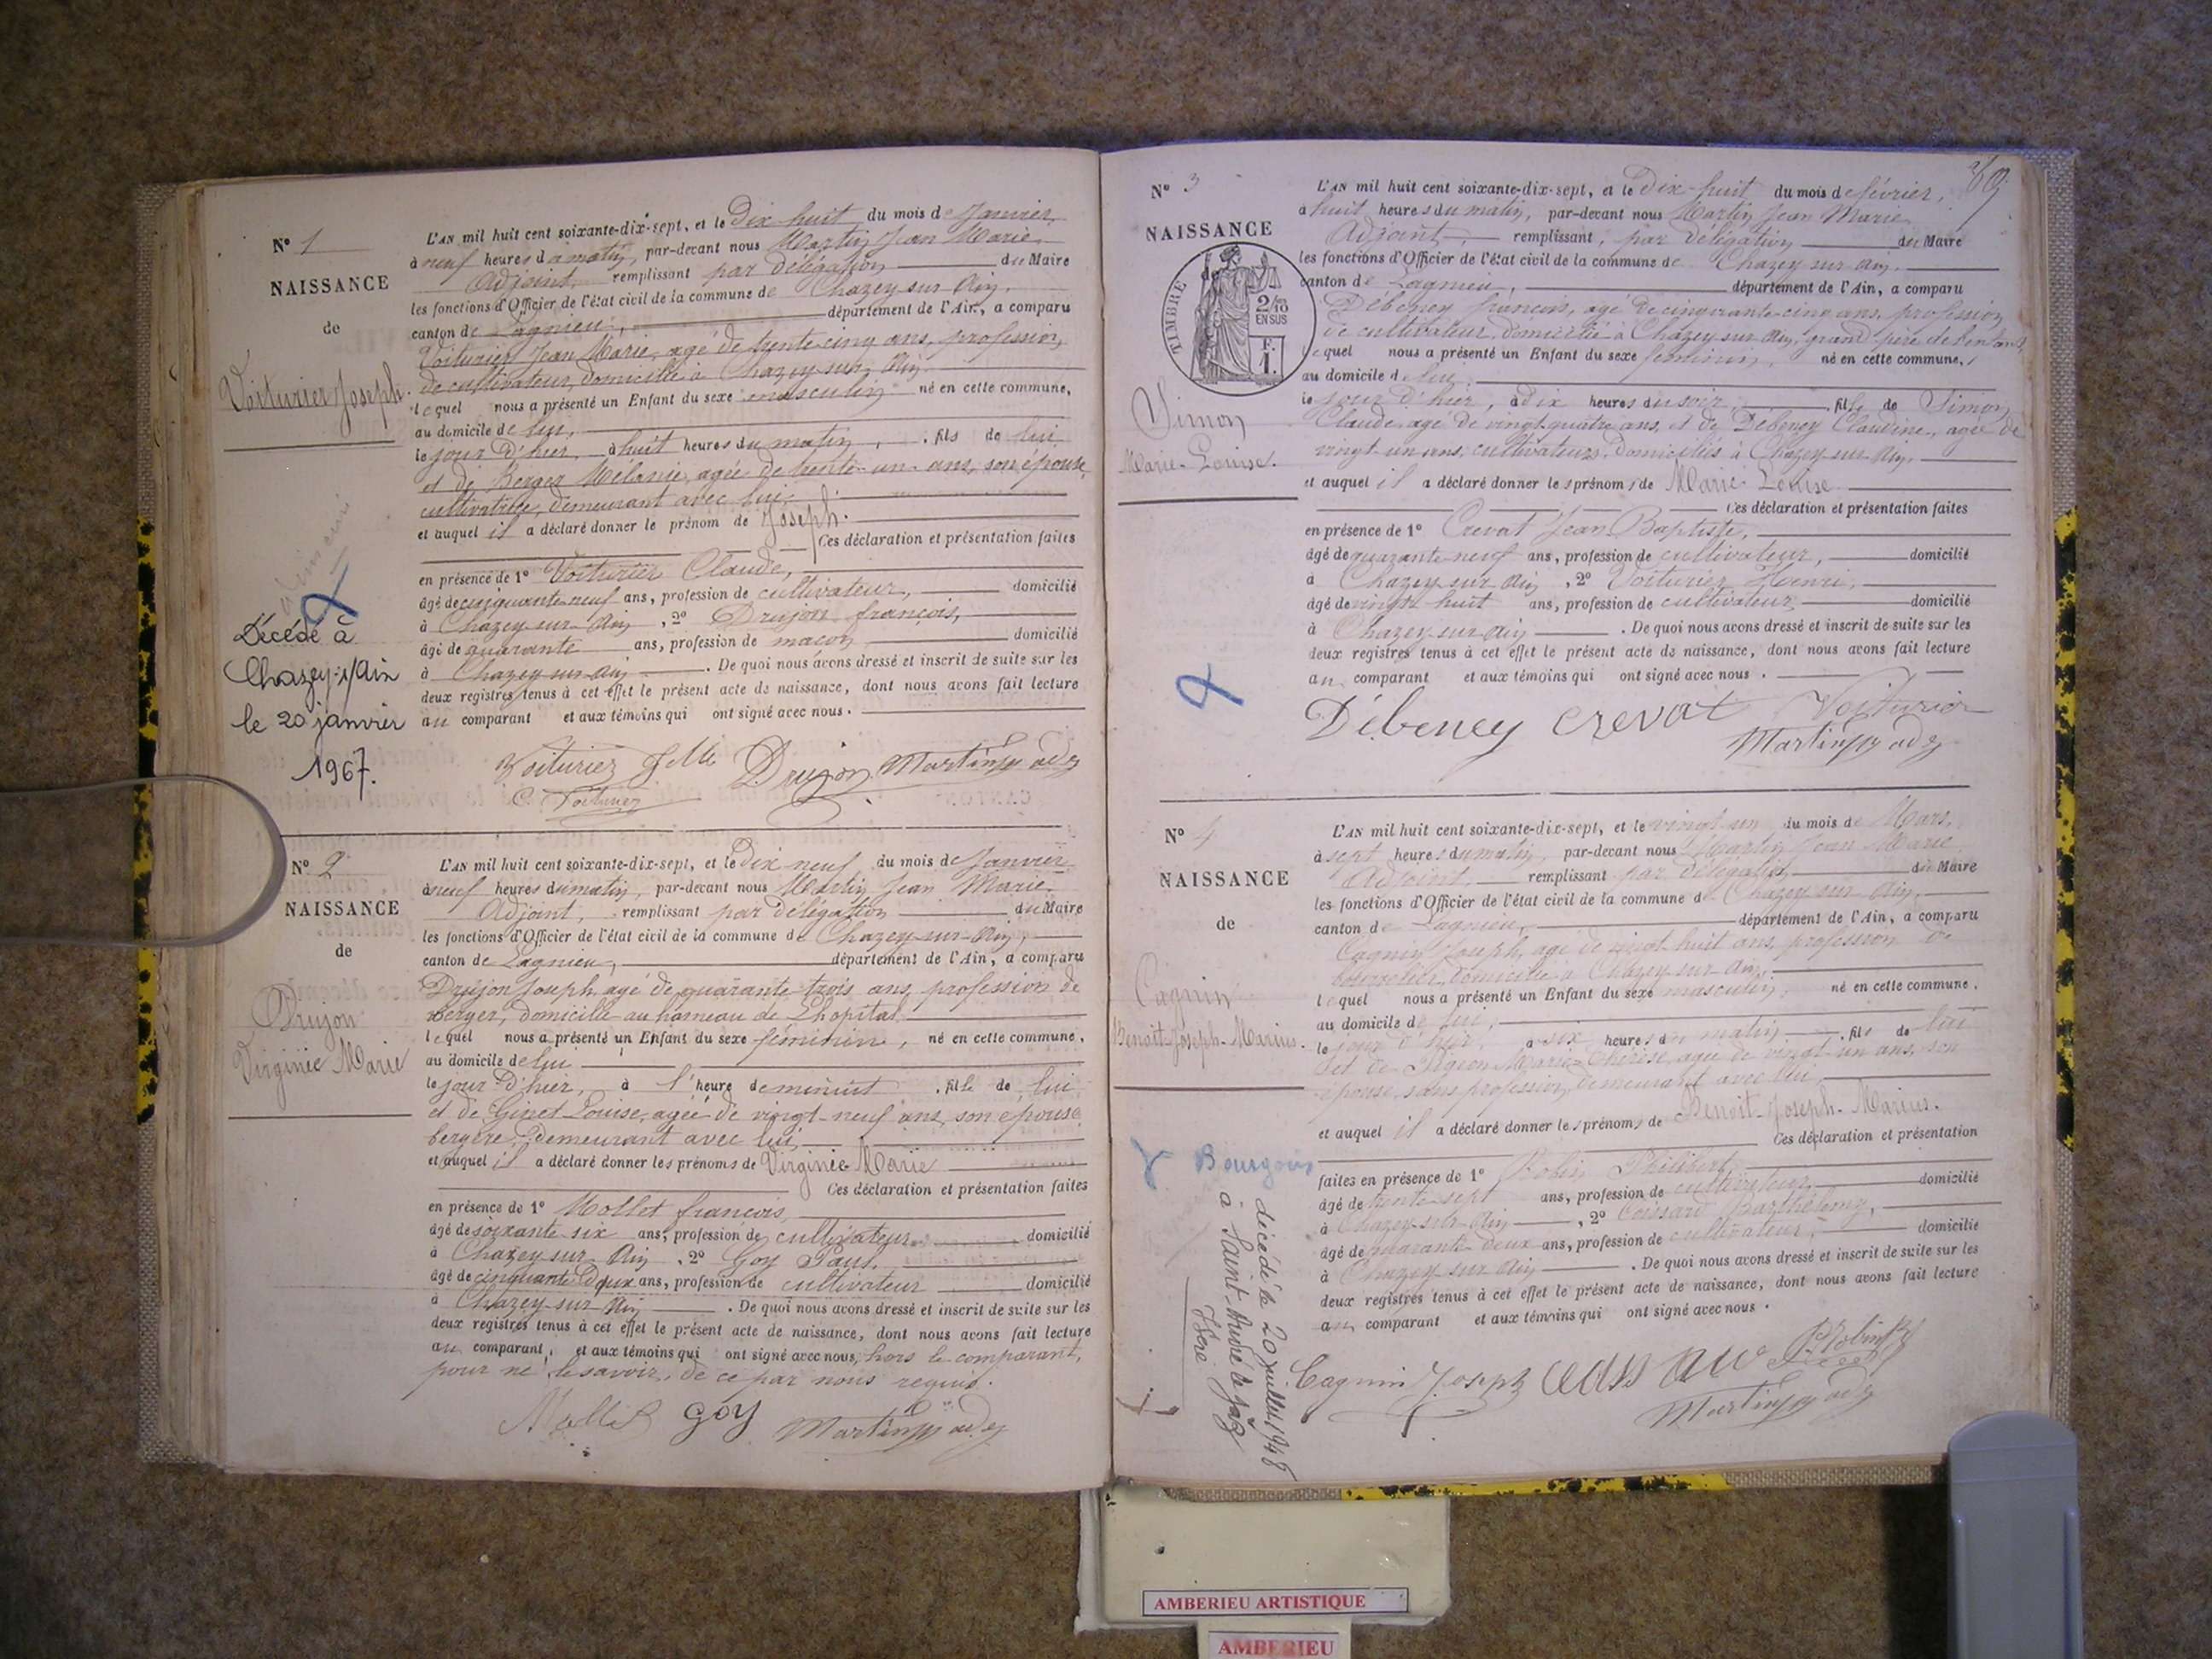 N° 1
NAISSANCE
de
Voiturier Joseph.
Décédé à
Chazey-s/Ain
le 20 janvier
1967.
L'AN mil huit cent soixante-dix-sept, et le Dix huit du mois de Janvier
à neuf heures du matin, par-devant nous Martin Jean Marie
Adjoint, remplissant par délégation du Maire
les fonctions d'Officier de l'état civil de la commune de Chazey sur Ain,
canton de Lagnieu, département de l'Ain, a comparu
Voiturier Jean Marie, agé de trente cinq ans, profession
de cultivateur, domicilié à Chazey sur Ain
lequel nous a présenté un Enfant du sexe masculin né en cette commune,
au domicile de lui,
le jour d'hier, à huit heures du matin, fils de lui
et de Berger Mélanie, agée de trente un ans, son épouse,
cultivatrice, demeurant avec lui,
et auquel il a déclaré donner le prénom de Joseph.
Ces déclaration et présentation faites
en présence de 1° Voiturier Claude,
âgé de cinquante neuf ans, profession de cultivateur, domicilié
à Chazey sur Ain, 2° Drujon françois,
âgé de quarante ans, profession de maçon domicilié
à Chazey sur Ain. De quoi nous avons dressé et inscrit de suite sur les
deux registres tenus à cet effet le présent acte de naissance, dont nous avons fait lecture
au comparant et aux témoins qui ont signé avec nous.
Voiturier Drujon Martin adj
C. Voiturier
N° 2
NAISSANCE
de
Drujon
Virginie Marie
L'AN mil huit cent soixante-dix-sept, et le Dix neuf du mois de Janvier
à neuf heures du matin, par-devant nous Martin Jean Marie
Adjoint, remplissant par délégation du Maire
les fonctions d'Officier de l'état civil de la commune de Chazey sur Ain,
canton de Lagnieu, département de l'Ain, a comparu
Drujon Joseph, agé de quarante trois ans, profession de
berger, domicilié au hameau de Lhopital
lequel nous a présenté un Enfant du sexe féminin, né en cette commune,
au domicile de lui
le jour d'hier, à l'heure de minuit, fille de lui
et de Ginet Louise, agée de vingt-neuf ans, son épouse
bergère, demeurant avec lui,
et auquel il a déclaré donner les prénoms de Virginie Marie
Ces déclaration et présentation faites
en présence de 1° Mollet françois,
âgé de soixante six ans, profession de cultivateur domicilié
à Chazey sur Ain, 2° Goy Paul,
âgé de cinquante Deux ans, profession de cultivateur domicilié
à Chazey sur Ain. De quoi nous avons dressé et inscrit de suite sur les
deux registres tenus à cet effet le présent acte de naissance, dont nous avons fait lecture
au comparant, et aux témoins qui ont signé avec nous, hors le comparant,
pour ne le savoir, de ce par nous requis.
Mollet Goy Martin adj
N° 3
NAISSANCE
TIMBRE
2/10
EN SUS
F.
1.
Simon
Marie-Louise.
L'AN mil huit cent soixante-dix-sept, et le Dix huit du mois de février,
à huit heures du matin, par-devant nous Martin Jean Marie
Adjoint, remplissant, par délégation du Maire
les fonctions d'Officier de l'état civil de la commune de Chazey sur Ain,
canton de Lagnieu, département de l'Ain, a comparu
Débeney françois, agé de cinquante-cinq ans, profession
de cultivateur, domicilié à Chazey sur Ain, grand père de l'enfant,
lequel nous a présenté un Enfant du sexe féminin, né en cette commune,
au domicile de lui,
le jour d'hier, à dix heures du soir, fille de Simon
Claude, agé de vingt quatre ans, et de Débeney Claudine, agée de
vingt un ans, cultivateurs, domiciliés à Chazey sur Ain,
et auquel il a déclaré donner les prénoms de Marie Louise
Ces déclaration et présentation faites
en présence de 1° Crevat Jean Baptiste,
âgé de quarante neuf ans, profession de cultivateur, domicilié
à Chazey sur Ain, 2° Voiturier Henri,
âgé de vingt huit ans, profession de cultivateur domicilié
à Chazey sur Ain. De quoi nous avons dressé et inscrit de suite sur les
deux registres tenus à cet effet le présent acte de naissance, dont nous avons fait lecture
au comparant et aux témoins qui ont signé avec nous.
Débeney crevat Voiturier
Martin adj
N° 4
NAISSANCE
de
Cagnin
Benoit-Joseph-Marius.
Bourgoin
décédé le 20 juillet 1948
à Saint-André le Gaz
Isère
L'AN mil huit cent soixante-dix-sept, et le vingt un du mois de Mars,
à sept heures du matin, par-devant nous Martin Jean Marie
Adjoint, remplissant par délégation du Maire
les fonctions d'Officier de l'état civil de la commune de Chazey sur Ain,
canton de Lagnieu, département de l'Ain, a comparu
Cagnin Joseph, agé de vingt huit ans, profession de
bourrelier, domicilié à Chazey sur Ain,
lequel nous a présenté un Enfant du sexe masculin, né en cette commune,
au domicile de lui,
le jour d'hier, à six heures du matin, fils de lui
et de Pigeon Marie-Thérèse, agée de vingt un ans, son
épouse, sans profession, demeurant avec lui,
et auquel il a déclaré donner les prénoms de Benoit-Joseph-Marius.
Ces déclaration et présentation
faites en présence de 1° Robin Philibert
âgé de trente sept ans, profession de cultivateur, domicilié
à Chazey sur Ain, 2° Barthélemy,
âgé de quarante deux ans, profession de cultivateur, domicilié
à Chazey sur Ain. De quoi nous avons dressé et inscrit de suite sur les
deux registres tenus à cet effet le présent acte de naissance, dont nous avons fait lecture
au comparant et aux témoins qui ont signé avec nous.
Cagnin Joseph Robin
Martin adj
AMBERIEU ARTISTIQUE
AMBERIEU